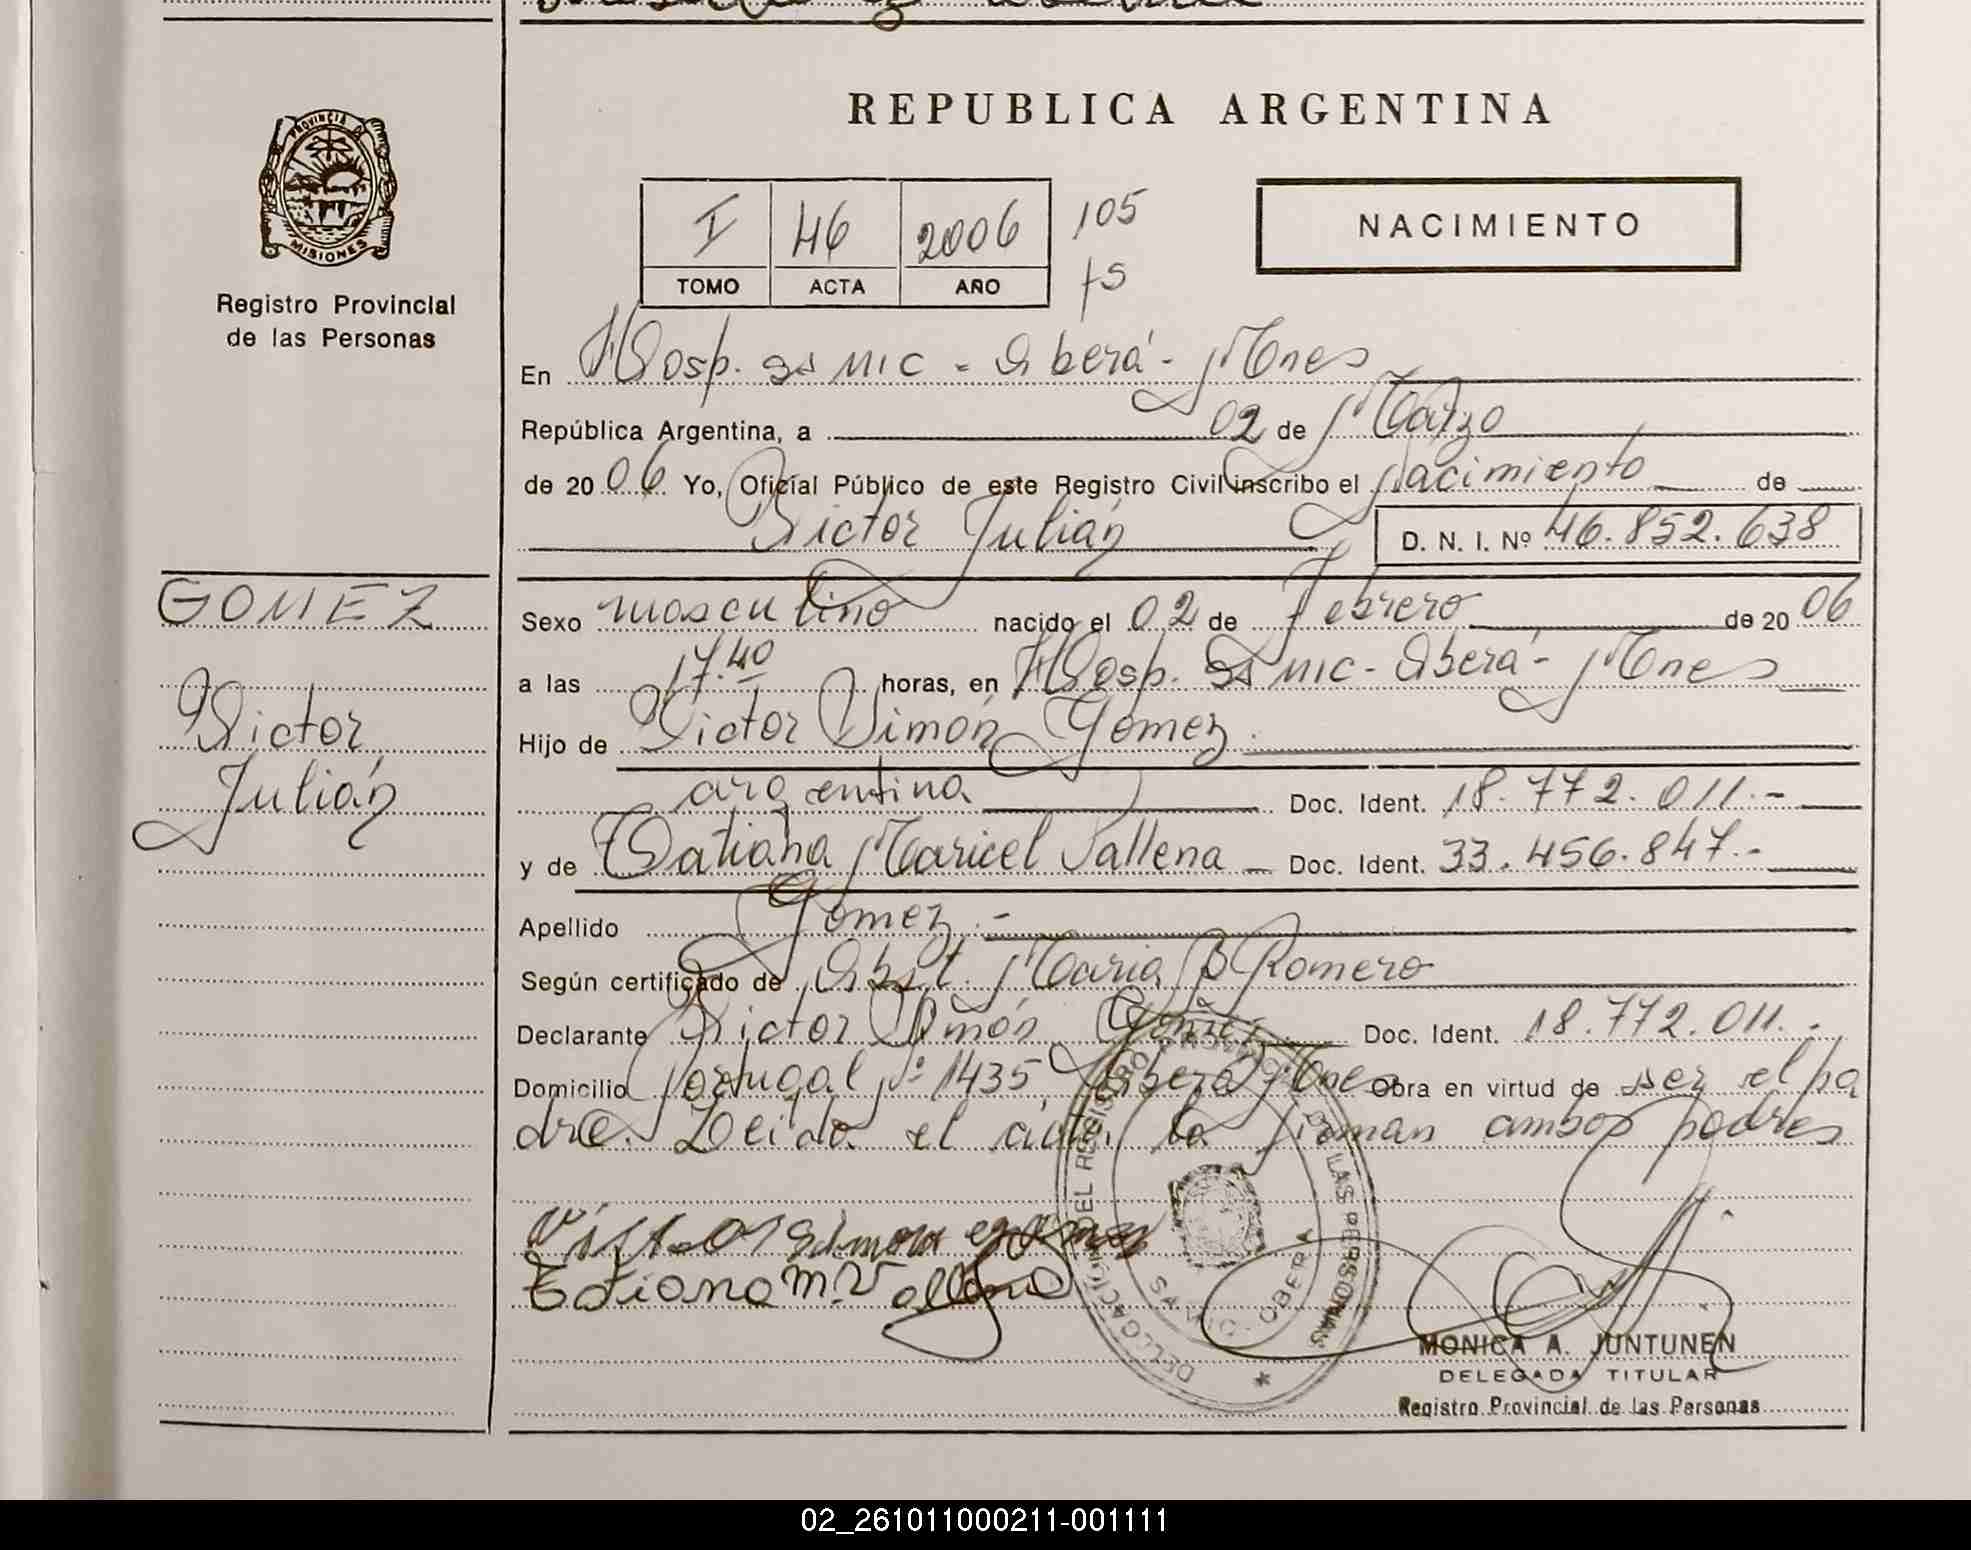 REPUBLICA ARGENTINA
PROVINCIA D
MISIONES
Registro Provincial
de las Personas
I 46 2006 105
TOMO ACTA AÑO
NACIMIENTO
En Hosp. SAMIC - Oberá - Mnes
República Argentina, a 02 de Marzo
de 2006 Yo, Oficial Público de este Registro Civil inscribo el nacimiento de
Victor Julián D. N. I. Nº 46.852.638
GOMEZ
Victor
Julián
Sexo masculino nacido el 02 de Febrero de 2006
a las 17.40 horas, en Hosp. SAMIC - Oberá - Mnes
Hijo de Victor Simón Gomez
argentina Doc. Ident. 18.772.011.-
y de Tatiana Maricel Vallena Doc. Ident. 33.456.847.-
Apellido Gomez.-
Según certificado de Obst. Maria B Romero
Declarante Victor Simón Gomez Doc. Ident. 18.772.011.-
Domicilio Portugal Nº 1435, Oberá Mnes Obra en virtud de ser el pa
dre. Leida el acta, la firman ambos padres
Victor Simon gomez
Tatiana M. Vallena
DELEGACION DEL REGISTRO PROVINCIAL DE LAS PERSONAS
SAMIC - OBERA
MONICA A. JUNTUNEN
DELEGADA TITULAR
Registro Provincial de las Personas
02_261011000211-001111